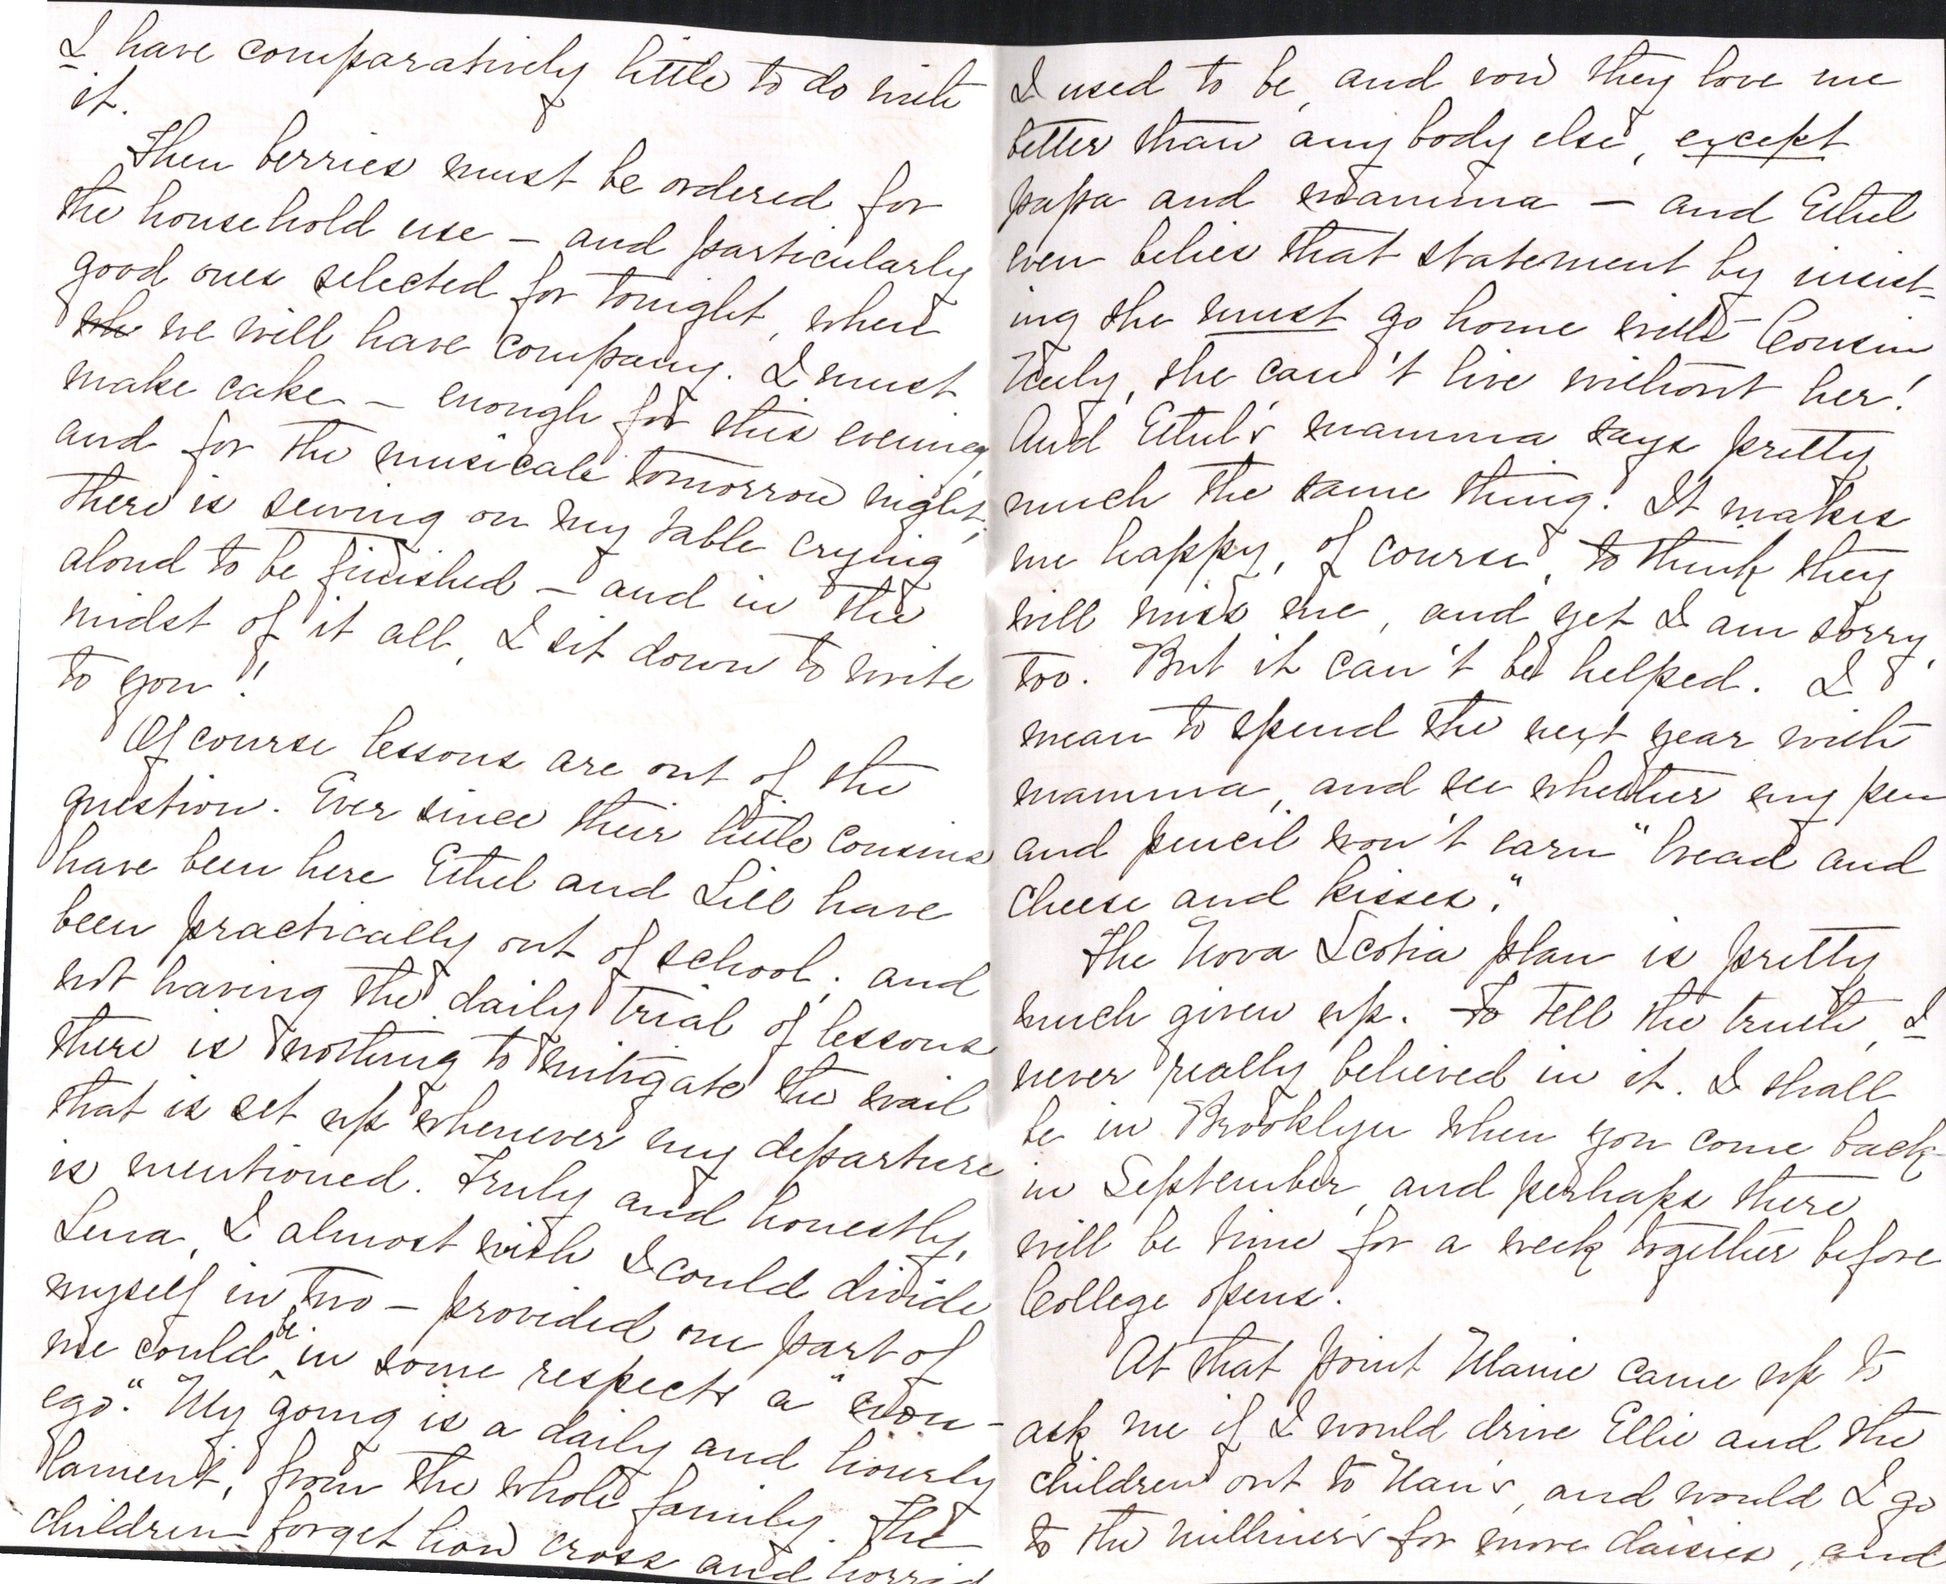 I have comparatively little to do with
it.
Then berries must be ordered for
the household use – and particularly
good ones selected for tonight, when
wh we will have company. I must
make cake – enough for this evening,
and for the musicale tomorrow night;
there is sewing on my table crying
aloud to be finished – and in the
midst of it all, I sit down to write
to you!!
Of course lessons are out of the
question. Ever since their little cousins
have been here Ethel and Lill have
been practically out of school; and
not having the daily trial of lessons
there is nothing to mitigate the wail
that is set up whenever my departure
is mentioned. Truly and honestly,
Lena, I almost wish I could divide
myself in two – provided one part of
me could be in some respects a "non-
ego." My going is a daily and hourly
lament, from the whole family. The
children forget how cross and horrid
I used to be, and vow they love me
better than any body else, except
papa and mamma – and Ethel
even belies that statement by insist-
ing she must go home with Cousin
Truly, she can't live without her!
And Ethel's mamma says pretty
much the same thing. It makes
me happy, of course, to think they
will miss me, and yet I am sorry,
too. But it can't be helped. I
mean to spend the next year with
mamma, and see whether my pen
and pencil won't earn "bread and
cheese and kisses."
The Nova Scotia plan is pretty
much given up. To tell the truth, I
never really believed in it. I shall
be in Brooklyn when you come back
in September, and perhaps there
will be time for a week together before
College opens.
At that point Mamie came up to
ask me if I would drive Ellie and the
children out to Nan's, and would I go
to the milliner's for more daisies, and